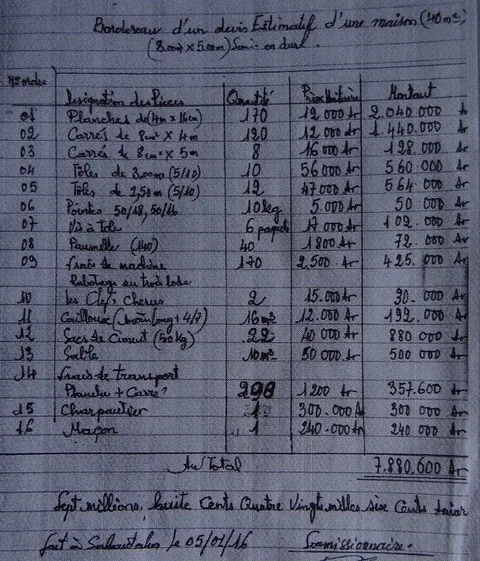 Bordereau d'un devis Estimatif d'une maison (40m²)
(8.00m x 5.00m) Semi-en dur.
N° ordre Designation des Pièces Quantité Prix Unitaire Montant
01 Planches de (4m x 16cm) 170 12 000 Ar 2.040.000 Ar
02 Carrés de 8cm² x 4m 120 12 000 Ar 1.440.000 Ar
03 Carrés de 8cm² x 5m 8 16 000 Ar 128.000 Ar
04 Tôles de 3,00m (5/10) 10 56 000 Ar 560.000 Ar
05 Tôles de 2,50m (5/10) 12 47 000 Ar 564.000 Ar
06 Pointes 50/18, 50/16 10kg 5.000 Ar 50 000 Ar
07 Vis à tole 6 paquets 17 000 Ar 102.000 Ar
08 Paumelle (140) 40 1800 Ar 72 000 Ar
09 frais de machine 170 2.500 Ar 425.000 Ar
Rabotage au trois lode
10 les Clef = Cheres 2 15.000 Ar 30.000 Ar
11 Cailloux (moin long + 4/7) 16m³ 12.000 Ar 192.000 Ar
12 Sacs de Ciment (50kg) 22 40 000 Ar 880 000 Ar
13 Sable 10m³ 50 000 Ar 500 000 Ar
14 frais de transport
Planche + Carré 298 1200 Ar 357.600 Ar
15 Charpentier 1 300.000 Ar 300 000 Ar
16 Maçon 1 240.000 Ar 240 000 Ar
Au Total 7.880.600 Ar
Sept. millions, huite Cents Quatre Vingt milles six Cents Ariar
fait à le 05/01/16 Soumissionnaire.